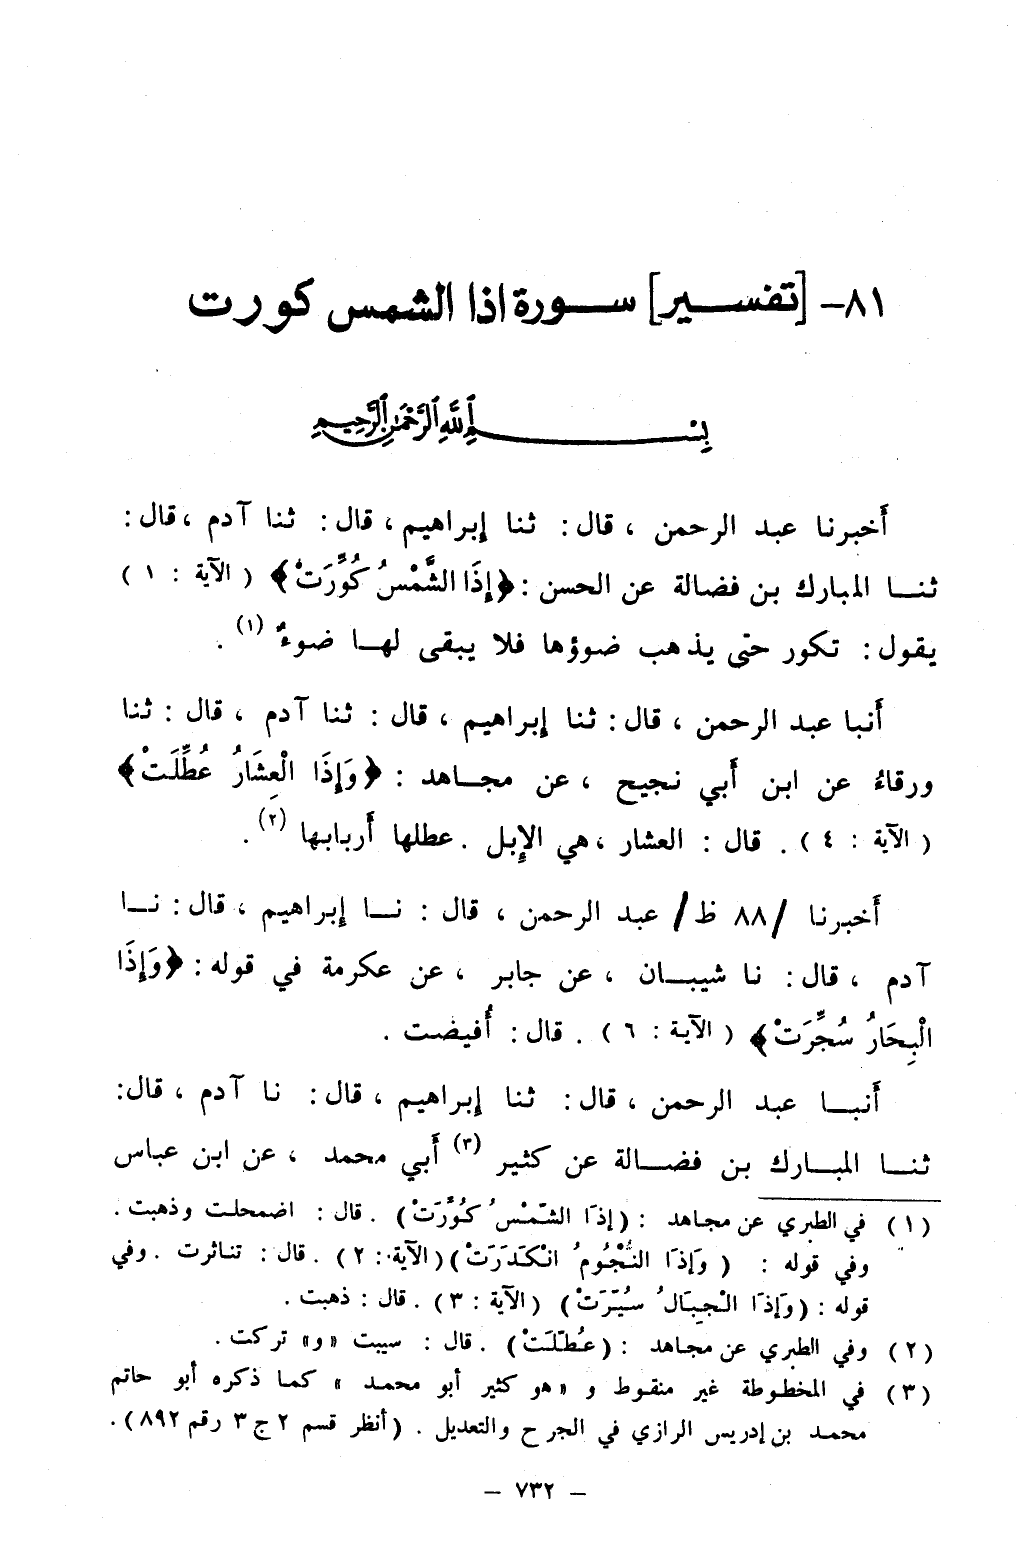 ٨١– [تفســـير] ســـورة اذا الشمس كورت
بِسْــــــمِ اللَّهِ الرَّحْمَٰنِ الرَّحِيمِ
أخبرنا عبد الرحمن ، قال : ثنا إبراهيم ، قال : ثنا آدم ، قال :
ثنــا المبارك بن فضالة عن الحسن : ﴿إِذَا الشَّمْسُ كُوِّرَتْ﴾ ( الآية : ١ )
يقول : تكور حتى يذهب ضوؤها فلا يبقى لهــا ضوءٌ (١) .
أنبا عبد الرحمن ، قال : ثنا إبراهيم ، قال : ثنا آدم ، قال : ثنا
ورقاءُ عن ابن أبي نجيح ، عن مجــاهد : ﴿وَإِذَا الْعِشَارُ عُطِّلَتْ﴾
( الآية : ٤ ) . قال : العشار ، هي الإبل . عطلها أربابها (٢) .
أخبرنا /٨٨ ظ/ عبد الرحمن ، قال : نــا إبراهيم ، قال : نــا
آدم ، قال : نا شيبــان ، عن جابر ، عن عكرمة في قوله : ﴿وَإِذَا
الْبِحَارُ سُجِّرَتْ﴾ ( الآية : ٦ ) . قال : أُفيضت .
أنبــا عبد الرحمن ، قال : ثنا إبراهيم ، قال : نا آدم ، قال :
ثنــا المبــارك بن فضــالة عن كثير (٣) أبي محمد ، عن ابن عباس
(١) في الطبري عن مجاهد : (إِذَا الشَّمْسُ كُوِّرَتْ) . قال : اضمحلت وذهبت .
وفي قوله : ( وَإِذَا النُّجُومُ انْكَدَرَتْ) (الآية : ٢) . قال : تناثرت . وفي
قوله : (وَإِذَا الْجِبَالُ سُيِّرَتْ) (الآية : ٣) . قال : ذهبت .
(٢) وفي الطبري عن مجاهد : (عُطِّلَتْ) . قال : سيبت «و» تركت .
(٣) في المخطوطة غير منقوط و «هو كثير أبو محمد » كما ذكره أبو حاتم
محمد بن إدريس الرازي في الجرح والتعديل . (أنظر قسم ٢ ج ٣ رقم ٨٩٢) .
– ٧٣٢ –